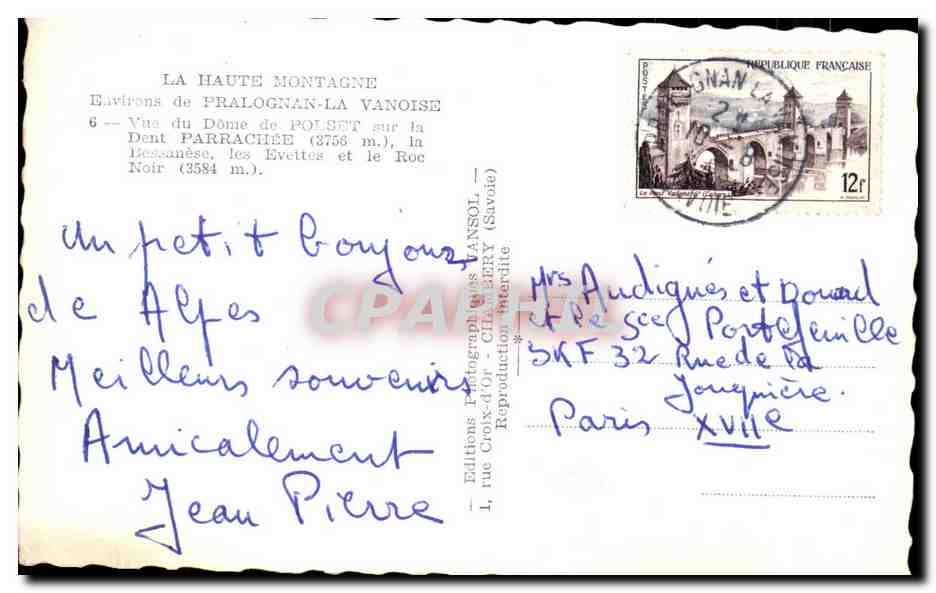 LA HAUTE MONTAGNE
Environs de PRALOGNAN-LA VANOISE
6 — Vue du Dôme de POLSET sur la
Dent PARRACHÉE (3756 m.), la
Bessanèse, les Evettes et le Roc
Noir (3584 m.).
un petit bonjour
de Alpes
Meilleurs souvenirs
Amicalement
Jean Pierre
— Editions Photographiques VANSOL —
1, rue Croix-d'Or - CHAMBÉRY (Savoie)
Reproduction interdite
RÉPUBLIQUE FRANÇAISE
POSTES
Le Pont Valentré (Cahors)
12F
GNAN LA
Mrs Audignés et Douard
et le Sce Portefeuille
SKF 32 Rue de la
Jonquière.
Paris XVIIe
CPARAMA